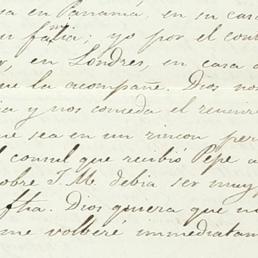 sa en Panamá, en su casa
en fatia; yo por el cont
r, en Londres, en casa d
ue la acompañe. Dios no
ia y nos conceda el reunirn
ue sea en un rincon per
l consul que recibió Pepe a
obre J. M. debia ser muy
ftia. Dios quiera que no
me volveré immediatam